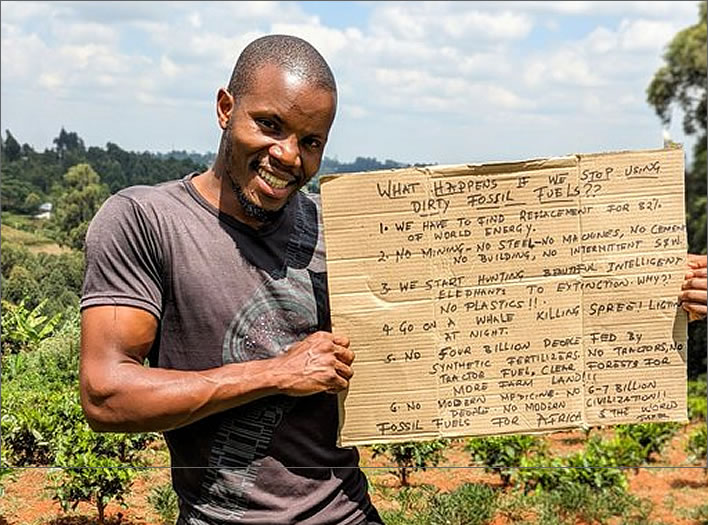 WHAT HAPPENS IF WE STOP USING
DIRTY FOSSIL FUELS??
1. WE HAVE TO FIND REPLACEMENT FOR 82%
OF WORLD ENERGY.
2. NO MINING - NO STEEL - NO MACHINES, NO CEMEN
NO BUILDING, NO INTERMITTENT S&W.
3. WE START HUNTING BEAUTIFUL INTELLIGENT
ELEPHANTS TO EXTINCTION. WHY?
NO PLASTICS!!.
4. GO ON A WHALE KILLING SPREE! LIGTN
AT NIGHT.
5. NO FOUR BILLION PEOPLE FED BY
SYNTHETIC FERTILIZERS. NO TRACTORS, NO
TRACTOR FUEL, CLEAR FORESTS FOR
MORE FARM LAND!!!
6. NO MODERN MEDICINE. NO 6-7 BILLION
PEOPLE NO MODERN CIVILIZATION!!
FOSSIL FUELS FOR AFRICA & THE WORLD